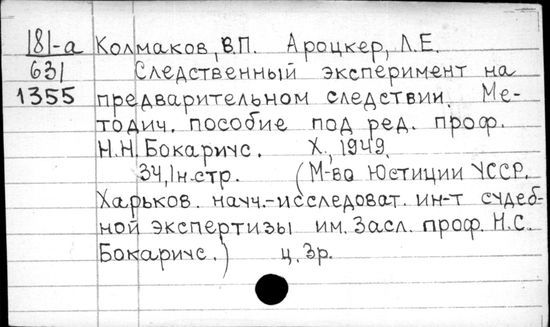 181-а Колмаков, В.П. Ароцкер, Л.Е.
631 Следственный эксперимент на
1355 предварительном следствии. Ме-
тодич. пособие под ред. проф.
Н.Н. Бокариус. Х., 1949.
34, 1н.стр. (М-во Юстиции УССР.
Харьков. науч.-исследоват. ин-т судеб-
ной экспертизы им. Засл. проф. Н.С.
Бокариус.) ц. 3р.